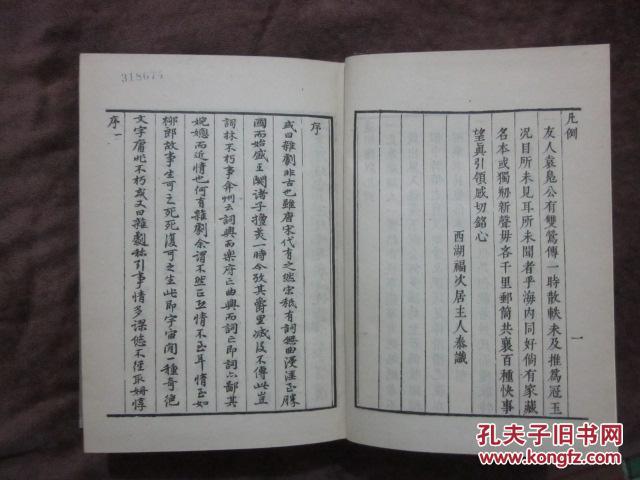 凡例
友人袁鳧公有雙鶯傳一時散軼未及推爲冠玉
況目所未見耳所未聞者乎海内同好倘有家藏
名本或獨剏新聲毋吝千里郵筒共襄百種快事
望眞引領感切銘心
西湖福次居主人泰識
一
318674
序
或曰雜劇非古也雖唐宋代有之總宗祇有詞無曲漫至勝
國而始盛王關諸子擅美一時今攷其爵里滅沒不傳此豈
詞林不朽事弇州云詞興而樂府亡曲興而詞亡即詞亡鄙其
婉戀而近情也何有雜劇余謂不然正情不至耳情至如
柳郎故事生可之死死復可之生此即宇宙間一種奇絕
文字庸非不朽或又曰雜劇引事情多謬悠不經取姍惇
序一
孔夫子旧书网
www.kongfz.com